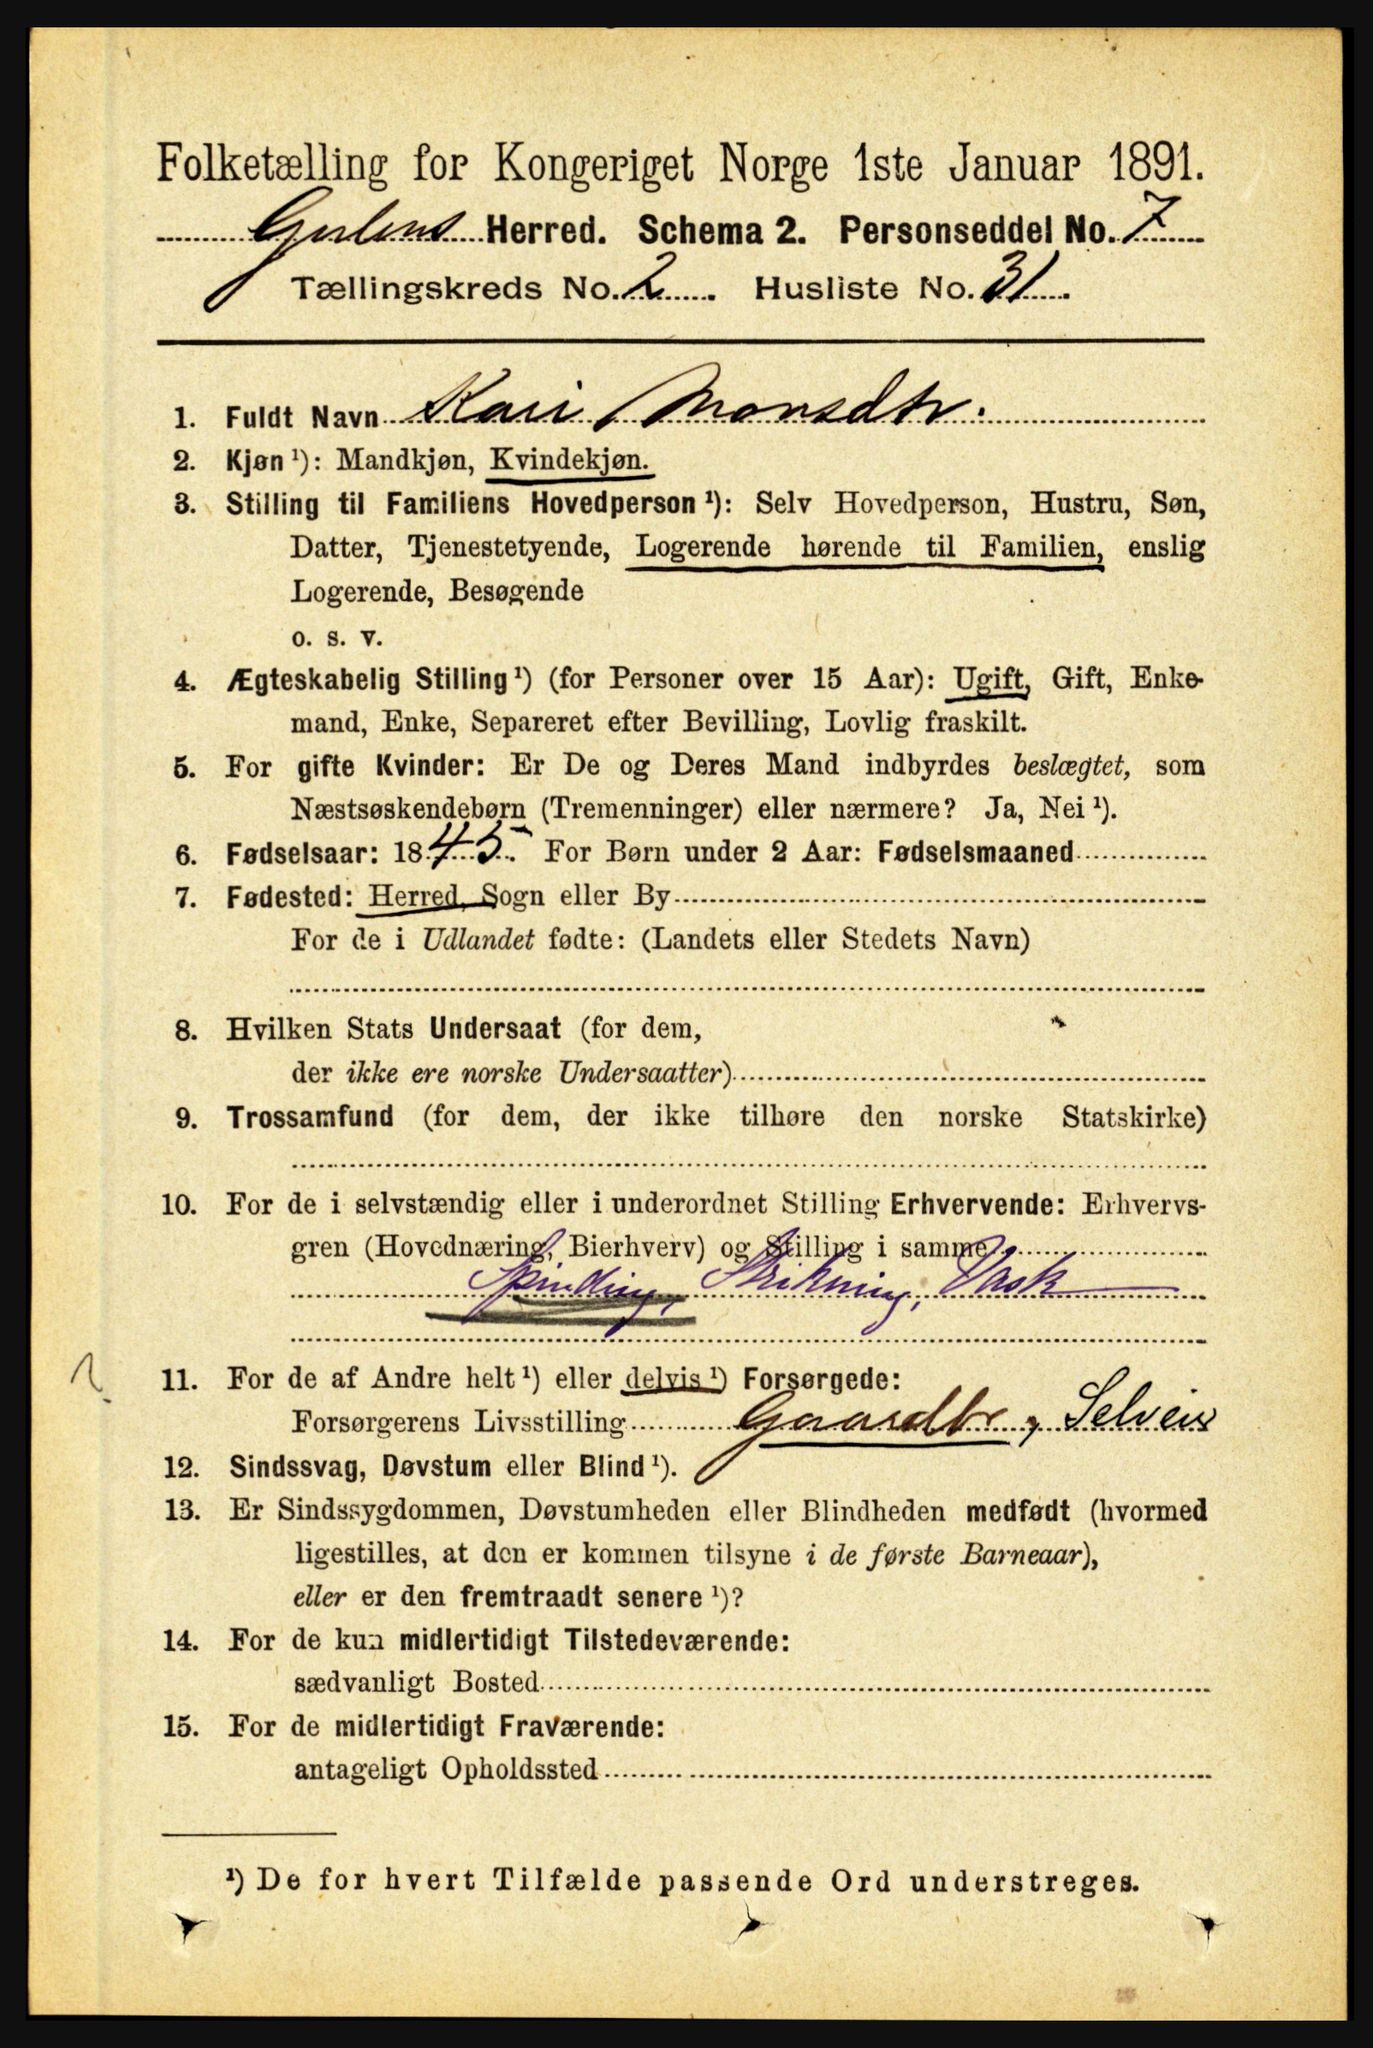 Folketælling for Kongeriget Norge 1ste Januar 1891.
Gulens Herred. Schema 2. Personseddel No. 7
Tællingskreds No. 2. Husliste No. 31.
1. Fuldt Navn Kari Monsdtr.
2. Kjøn ¹): Mandkjøn, Kvindekjøn.
3. Stilling til Familiens Hovedperson ¹): Selv Hovedperson, Hustru, Søn,
Datter, Tjenestetyende, Logerende hørende til Familien, enslig
Logerende, Besøgende
o. s. v.
4. Ægteskabelig Stilling ¹) (for Personer over 15 Aar): Ugift, Gift, Enke-
mand, Enke, Separeret efter Bevilling, Lovlig fraskilt.
5. For gifte Kvinder: Er De og Deres Mand indbyrdes beslægtet, som
Næstsøskendebørn (Tremenninger) eller nærmere? Ja, Nei ¹).
6. Fødselsaar: 1845. For Børn under 2 Aar: Fødselsmaaned
7. Fødested: Herred, Sogn eller By
For de i Udlandet fødte: (Landets eller Stedets Navn)
8. Hvilken Stats Undersaat (for dem,
der ikke ere norske Undersaatter)
9. Trossamfund (for dem, der ikke tilhøre den norske Statskirke)
10. For de i selvstændig eller i underordnet Stilling Erhvervende: Erhvervs-
gren (Hovednæring, Bierhverv) og Stilling i samme
Spinding, Strikning, Vask
11. For de af Andre helt ¹) eller delvis ¹) Forsørgede:
Forsørgerens Livsstilling Gaardbr, Selveier
12. Sindssvag, Døvstum eller Blind ¹).
13. Er Sindssygdommen, Døvstumheden eller Blindheden medfødt (hvormed
ligestilles, at den er kommen tilsyne i de første Barneaar),
eller er den fremtraadt senere ¹)?
14. For de kun midlertidigt Tilstedeværende:
sædvanligt Bosted
15. For de midlertidigt Fraværende:
antageligt Opholdssted
¹) De for hvert Tilfælde passende Ord understreges.